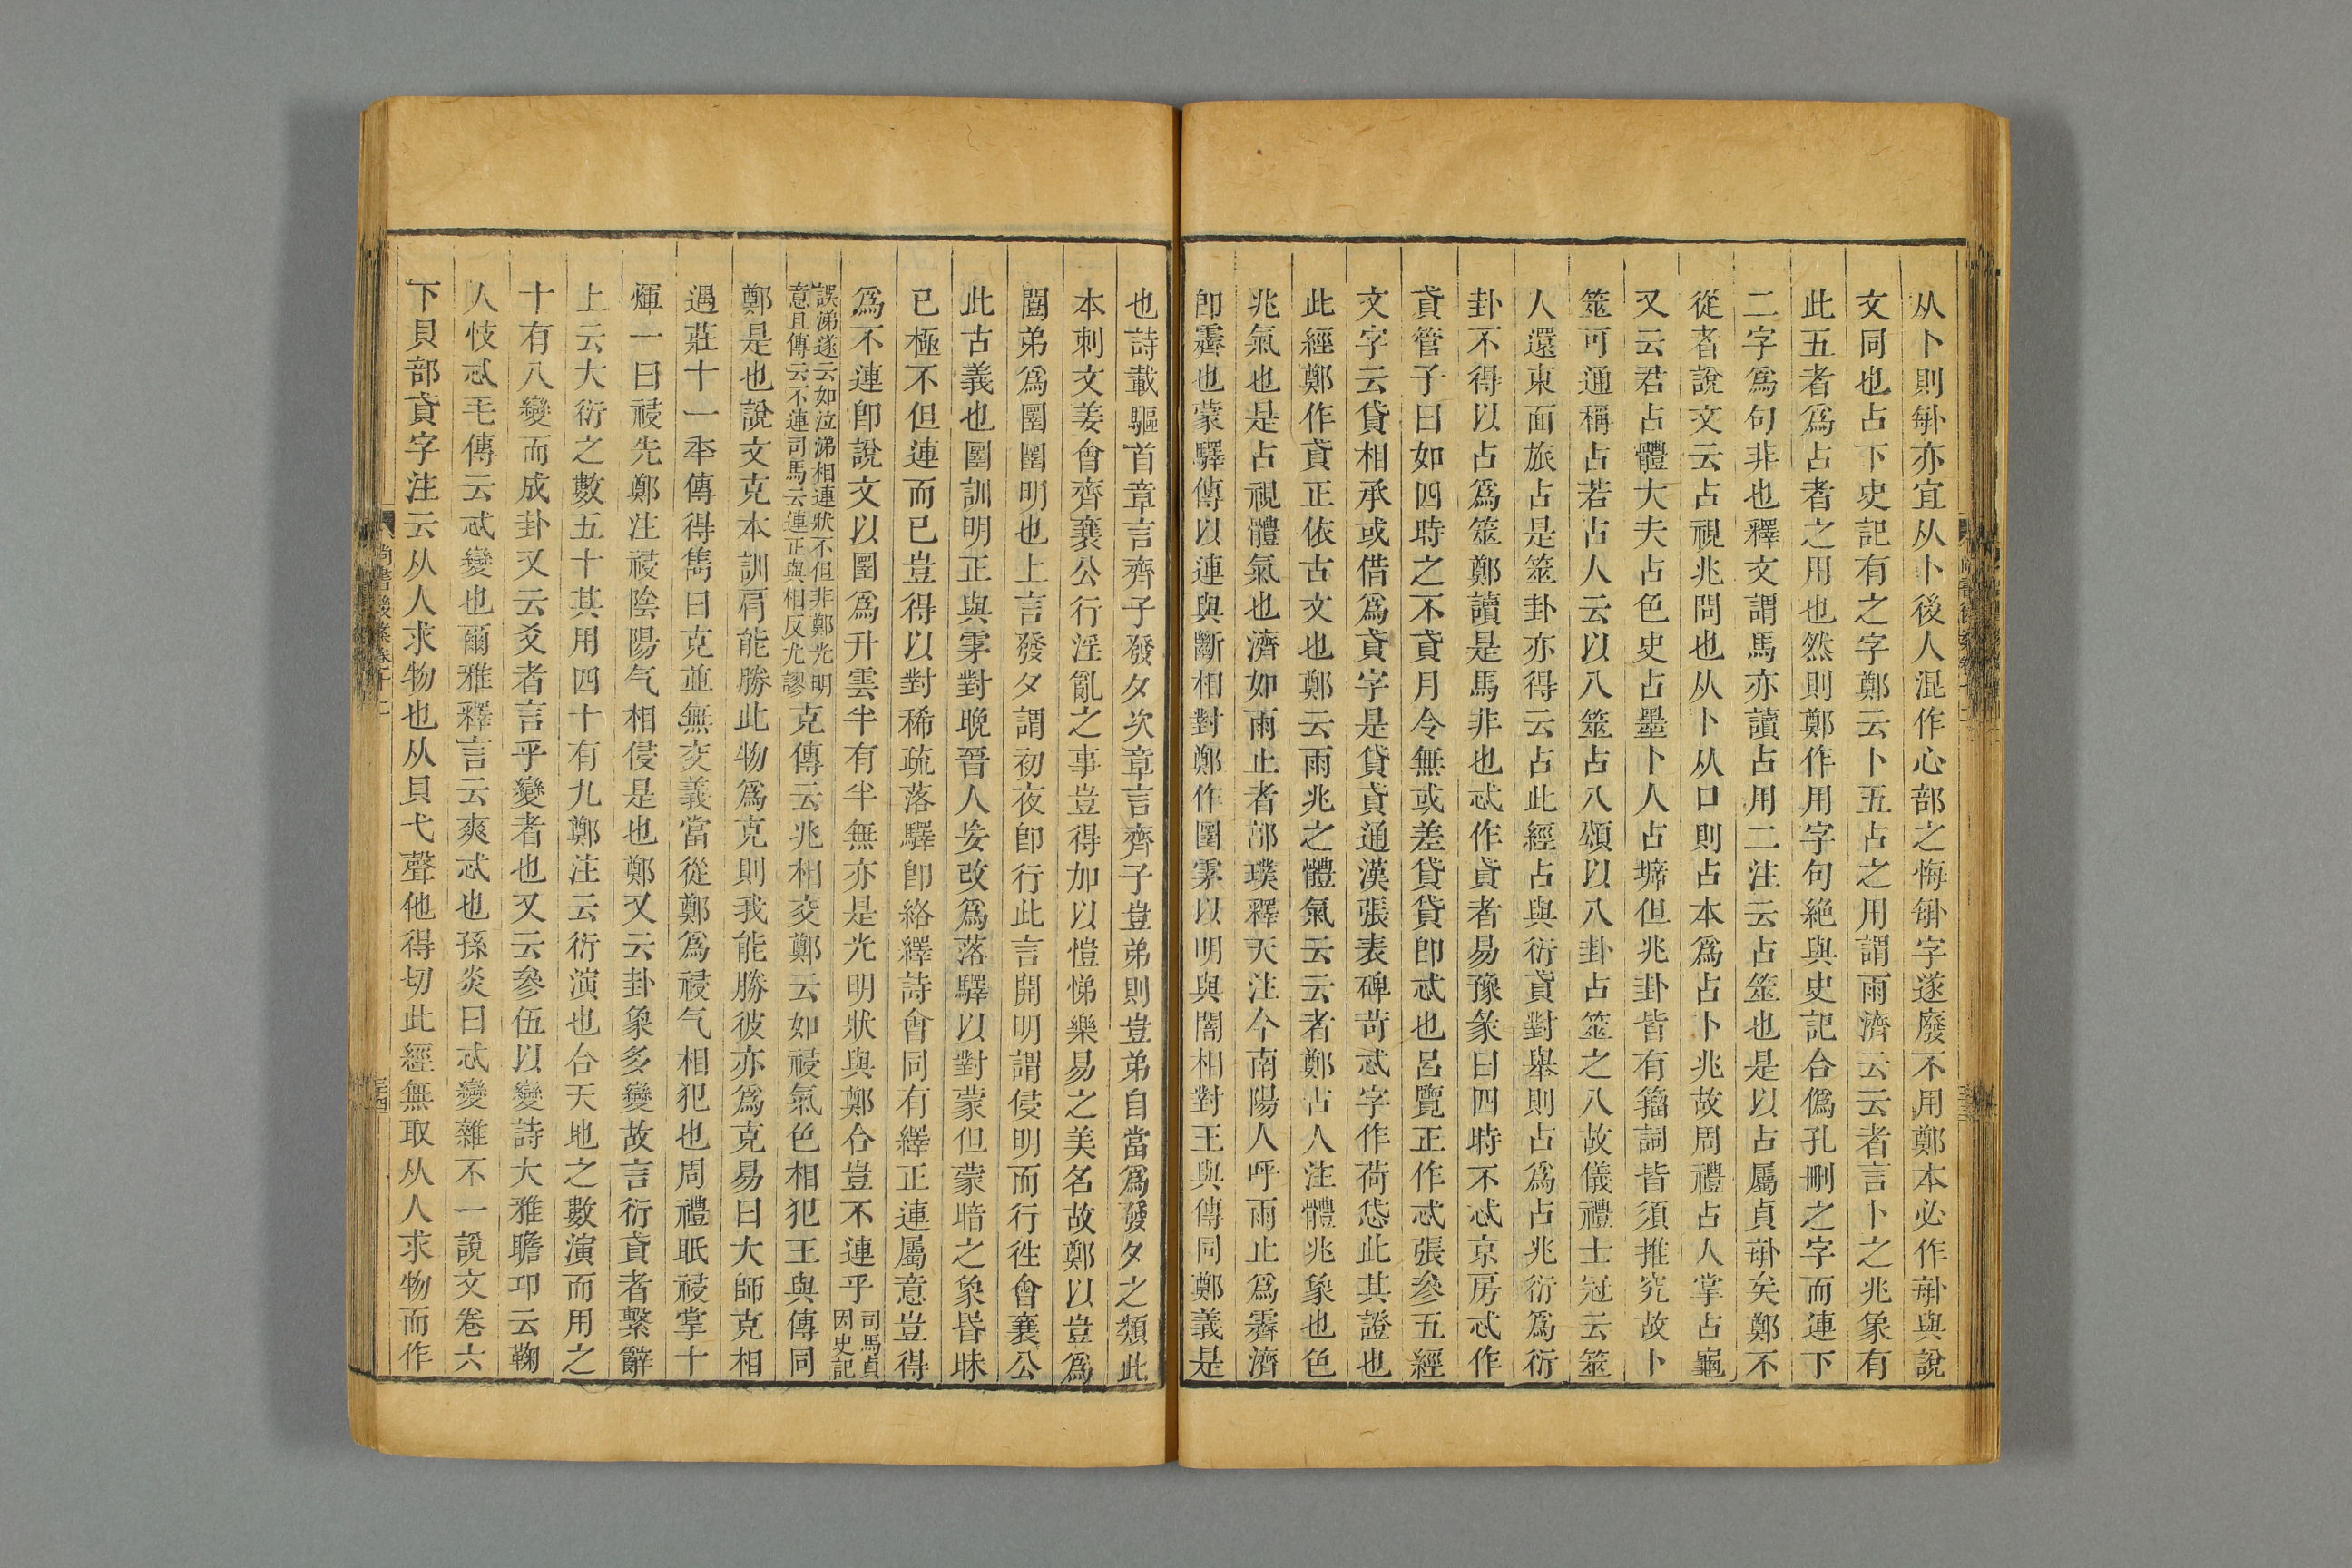 从卜則𠧩亦宜从卜後人混作心部之悔𠧩字遂廢不用鄭本必作𠧩與說
文同也占下史記有之字鄭云卜五占之用謂雨濟云云者言卜之兆象有
此五者爲占者之用也然則鄭作用字句絶與史記合僞孔刪之字而連下
二字爲句非也釋文謂馬亦讀占用二注云占筮也是以占屬貞𠧩矣鄭不
從者說文云占視兆問也从卜从口則占本爲占卜兆故周禮占人掌占龜
又云君占體大夫占色史占墨卜人占墲但兆卦皆有籀詞皆須推究故卜
筮可通稱占若占人云以八筮占八頌以八卦占筮之八故儀禮士冠云筮
人還東面旅占是筮卦亦得云占此經占與衍貣對舉則占爲占兆衍爲衍
卦不得以占爲筮鄭讀是馬非也忒作貣者易豫彖曰四時不忒京房忒作
貣管子曰如四時之不貣月令無或差貸貸卽忒也呂覽正作忒張參五經
文字云貸相承或借爲貣字是貸貣通漢張表碑苛忒字作荷㤴此其證也
此經鄭作貣正依古文也鄭云雨兆之體氣云云者鄭占人注體兆象也色
兆氣也是占視體氣也濟如雨止者郭璞釋天注今南陽人呼雨止爲霽濟
卽霽也蒙驛傳以連與斷相對鄭作圛雺以明與闇相對王與傳同鄭義是
也詩載驅首章言齊子發夕次章言齊子豈弟則豈弟自當爲發夕之類此
本刺文姜會齊襄公行淫亂之事豈得加以愷悌樂易之美名故鄭以豈爲
闓弟爲圛圛明也上言發夕謂初夜卽行此言開明謂侵明而行徃會襄公
此古義也圛訓明正與雺對晚晉人妄改爲落驛以對蒙但蒙暗之象昏昧
已極不但連而已豈得以對稀疏落驛卽絡繹詩會同有繹正連屬意豈得
爲不連卽說文以圛爲升雲半有半無亦是光明狀與鄭合豈不連乎司馬貞因史記
誤涕遂云如泣涕相連狀不但非鄭光明意且傳云不連司馬云連正與相反尤謬克傳云兆相交鄭云如祲氣色相犯王與傳同
鄭是也說文克本訓肩能勝此物爲克則我能勝彼亦爲克易曰大師克相
遇莊十一年傳得雋曰克並無交義當從鄭爲祲气相犯也周禮眂祲掌十
煇一曰祲先鄭注祲陰陽气相侵是也鄭又云卦象多變故言衍貣者繫辭
上云大衍之數五十其用四十有九鄭注云衍演也合天地之數演而用之
十有八變而成卦又云爻者言乎變者也又云參伍以變詩大雅瞻卬云鞫
人忮忒毛傳云忒變也爾雅釋言云爽忒也孫炎曰忒變雜不一說文卷六
下貝部貣字注云从人求物也从貝弋聲他得切此經無取从人求物而作
尚書後案卷十二
三十四